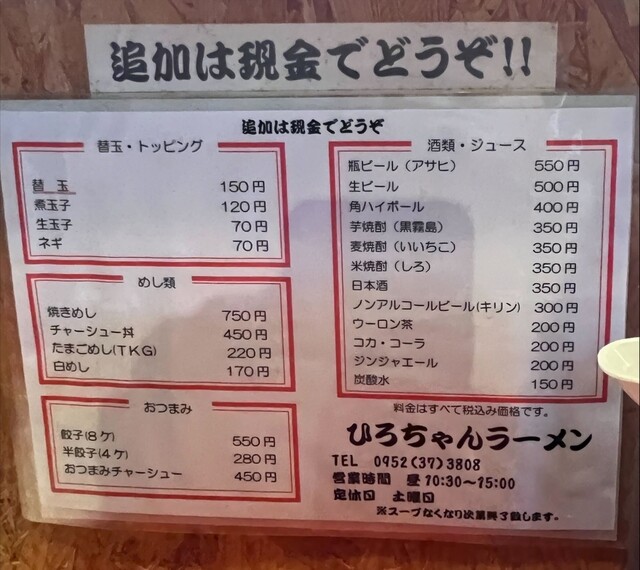 追加は現金でどうぞ!!
追加は現金でどうぞ
替玉・トッピング
替 玉 150円
煮玉子 120円
生玉子 70円
ネギ 70円
めし類
焼きめし 750円
チャーシュー丼 450円
たまごめし(TKG) 220円
白めし 170円
おつまみ
餃子(8ケ) 550円
半餃子(4ケ) 280円
おつまみチャーシュー 450円
酒類・ジュース
瓶ビール（アサヒ） 550円
生ビール 500円
角ハイボール 400円
芋焼酎（黒霧島） 350円
麦焼酎（いいちこ） 350円
米焼酎（しろ） 350円
日本酒 350円
ノンアルコールビール(キリン) 300円
ウーロン茶 200円
コカ・コーラ 200円
ジンジャエール 200円
炭酸水 150円
料金はすべて税込み価格です。
ひろちゃんラーメン
TEL 0952(37)3808
営業時間 昼10:30~15:00
定休日 土曜日
※スープなくなり次第終了致します。